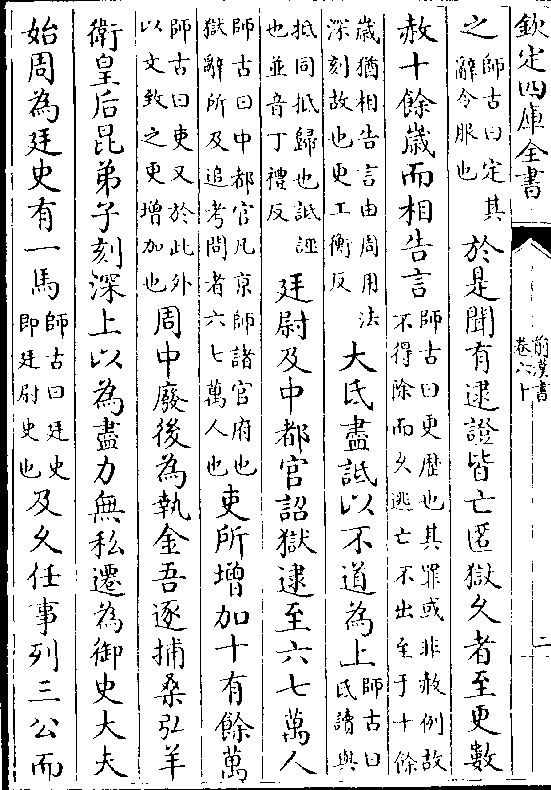 欽定四庫全書
前漢書
卷六十
二
之師古曰定其辭令服也於是聞有逮證皆亡匿獄久者至更數
赦十餘嵗而相告言師古曰更歴也其罪或非赦例故不得除而久逃亡不出至于十餘
嵗猶相告言由周用法深刻故也更工衡反大氐盡詆以不道為上師古曰氐讀與
抵同抵歸也詆誣也並音丁禮反廷尉及中都官詔獄逮至六七萬人
師古曰中都官凡京師諸官府也獄辭所及追考問者六七萬人也吏所增加十有餘萬
師古曰吏又於此外以文致之更增加也周中廢後為執金吾逐捕桑弘羊
衛皇后昆弟子刻深上以為盡力無私遷為御史大夫
始周為廷史有一馬師古曰廷史即廷尉史也及久任事列三公而